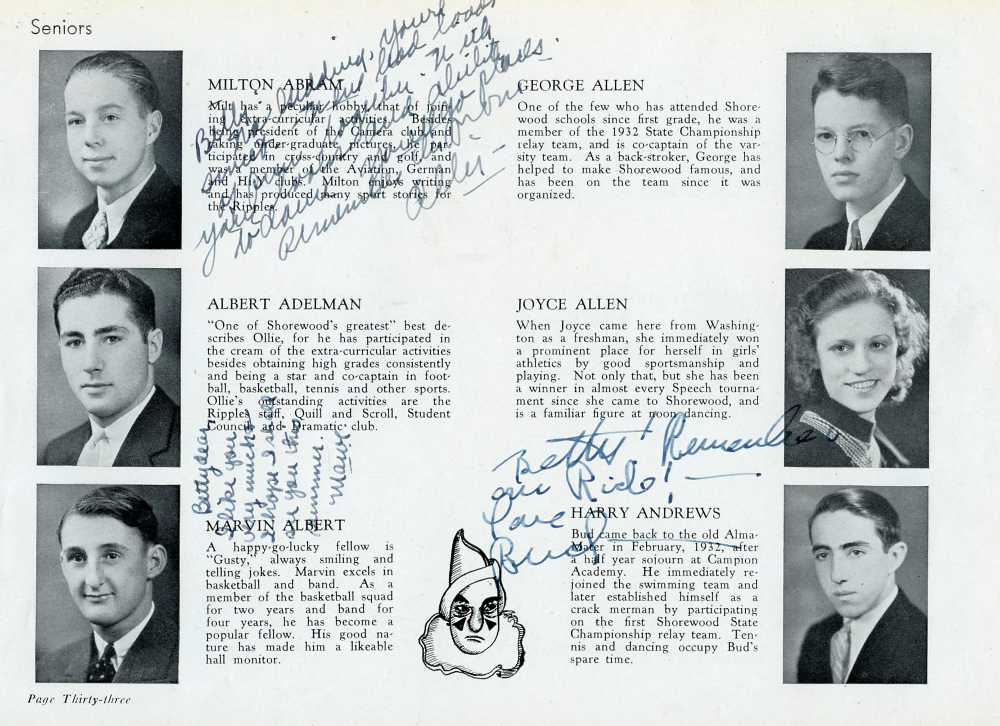 Seniors
MILTON ABRAM
Milt has a peculiar hobby, that of join-
ing extra-curricular activities. Besides
being president of the Camera club and
taking under-graduate pictures, he par-
ticipated in cross-country and golf, and
was a member of the Aviation, German
and Hi-Y clubs. Milton enjoys writing
and has produced many sport stories for
the Ripples.
GEORGE ALLEN
One of the few who has attended Shore-
wood schools since first grade, he was a
member of the 1932 State Championship
relay team, and is co-captain of the var-
sity team. As a back-stroker, George has
helped to make Shorewood famous, and
has been on the team since it was
organized.
ALBERT ADELMAN
"One of Shorewood's greatest" best de-
scribes Ollie, for he has participated in
the cream of the extra-curricular activities
besides obtaining high grades consistently
and being a star and co-captain in foot-
ball, basketball, tennis and other sports.
Ollie's outstanding activities are the
Ripples staff, Quill and Scroll, Student
Council and Dramatic club.
JOYCE ALLEN
When Joyce came here from Washing-
ton as a freshman, she immediately won
a prominent place for herself in girls'
athletics by good sportsmanship and
playing. Not only that, but she has been
a winner in almost every Speech tourna-
ment since she came to Shorewood, and
is a familiar figure at noon dancing.
Betty dear
I like you
very much &
I hope I shall
see you this
summer.
Marv
Betty! Remember
our Ride!
Love
Bud
MARVIN ALBERT
A happy-go-lucky fellow is
"Gusty," always smiling and
telling jokes. Marvin excels in
basketball and band. As a
member of the basketball squad
for two years and band for
four years, he has become a
popular fellow. His good na-
ture has made him a likeable
hall monitor.
HARRY ANDREWS
Bud came back to the old Alma-
Mater in February, 1932, after
a half year sojourn at Campion
Academy. He immediately re-
joined the swimming team and
later established himself as a
crack merman by participating
on the first Shorewood State
Championship relay team. Ten-
nis and dancing occupy Bud's
spare time.
Page Thirty-three